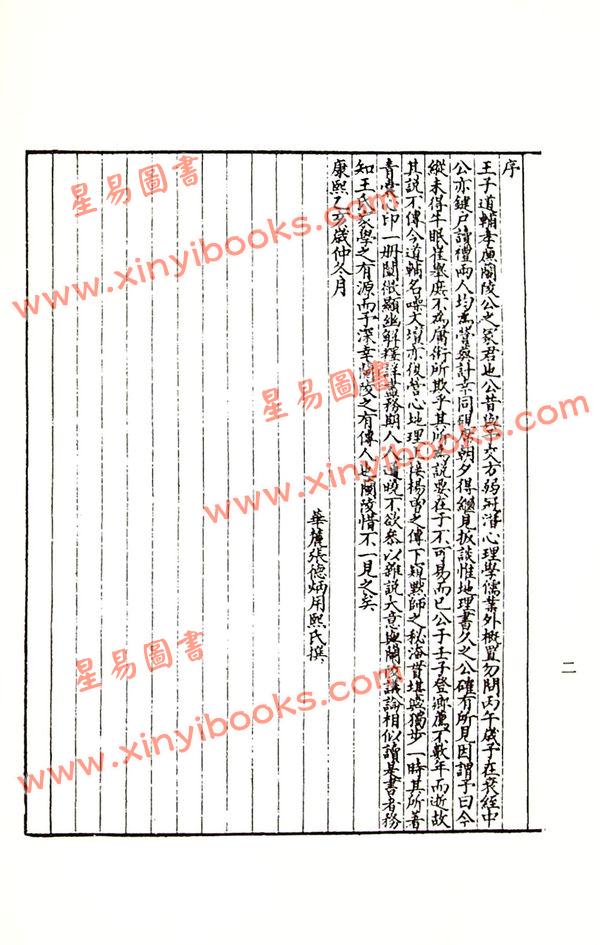 序
王子道輔孝廣蘭陵公之冢君也公昔與予交方弱冠潛心理學儒業外概置勿問丙午歲予在衰絰中
公亦鍵戶讀禮兩人均為營葬計京同硯席朝夕得繼見扳談惟地理書久之公確有所見因謂予曰今
縱未得牛眠從葬庶不為庸術所欺乎其所為說要在于不可易而已公于壬子登鄉薦不數年而逝故
其說不傳今道輔名噪文壇亦復營心地理上接楊曾之傳下窺默師之秘海貫堪輿獨步一時其所著
青 心印一冊闡微顯幽解釋詳蓋務期人人通曉不欲參以雜說大意與蘭陵講論相似讀是書者務
知王氏家學之有源而予深幸蘭陵之有傳人也蘭陵惜不一見之矣
華麓張德炳用熙氏撰
康熙乙亥歲仲冬月
二
星易圖書
www.xinyibooks.com
星易圖書
www.xinyibooks.com
星易圖書
www.xinyibooks.com